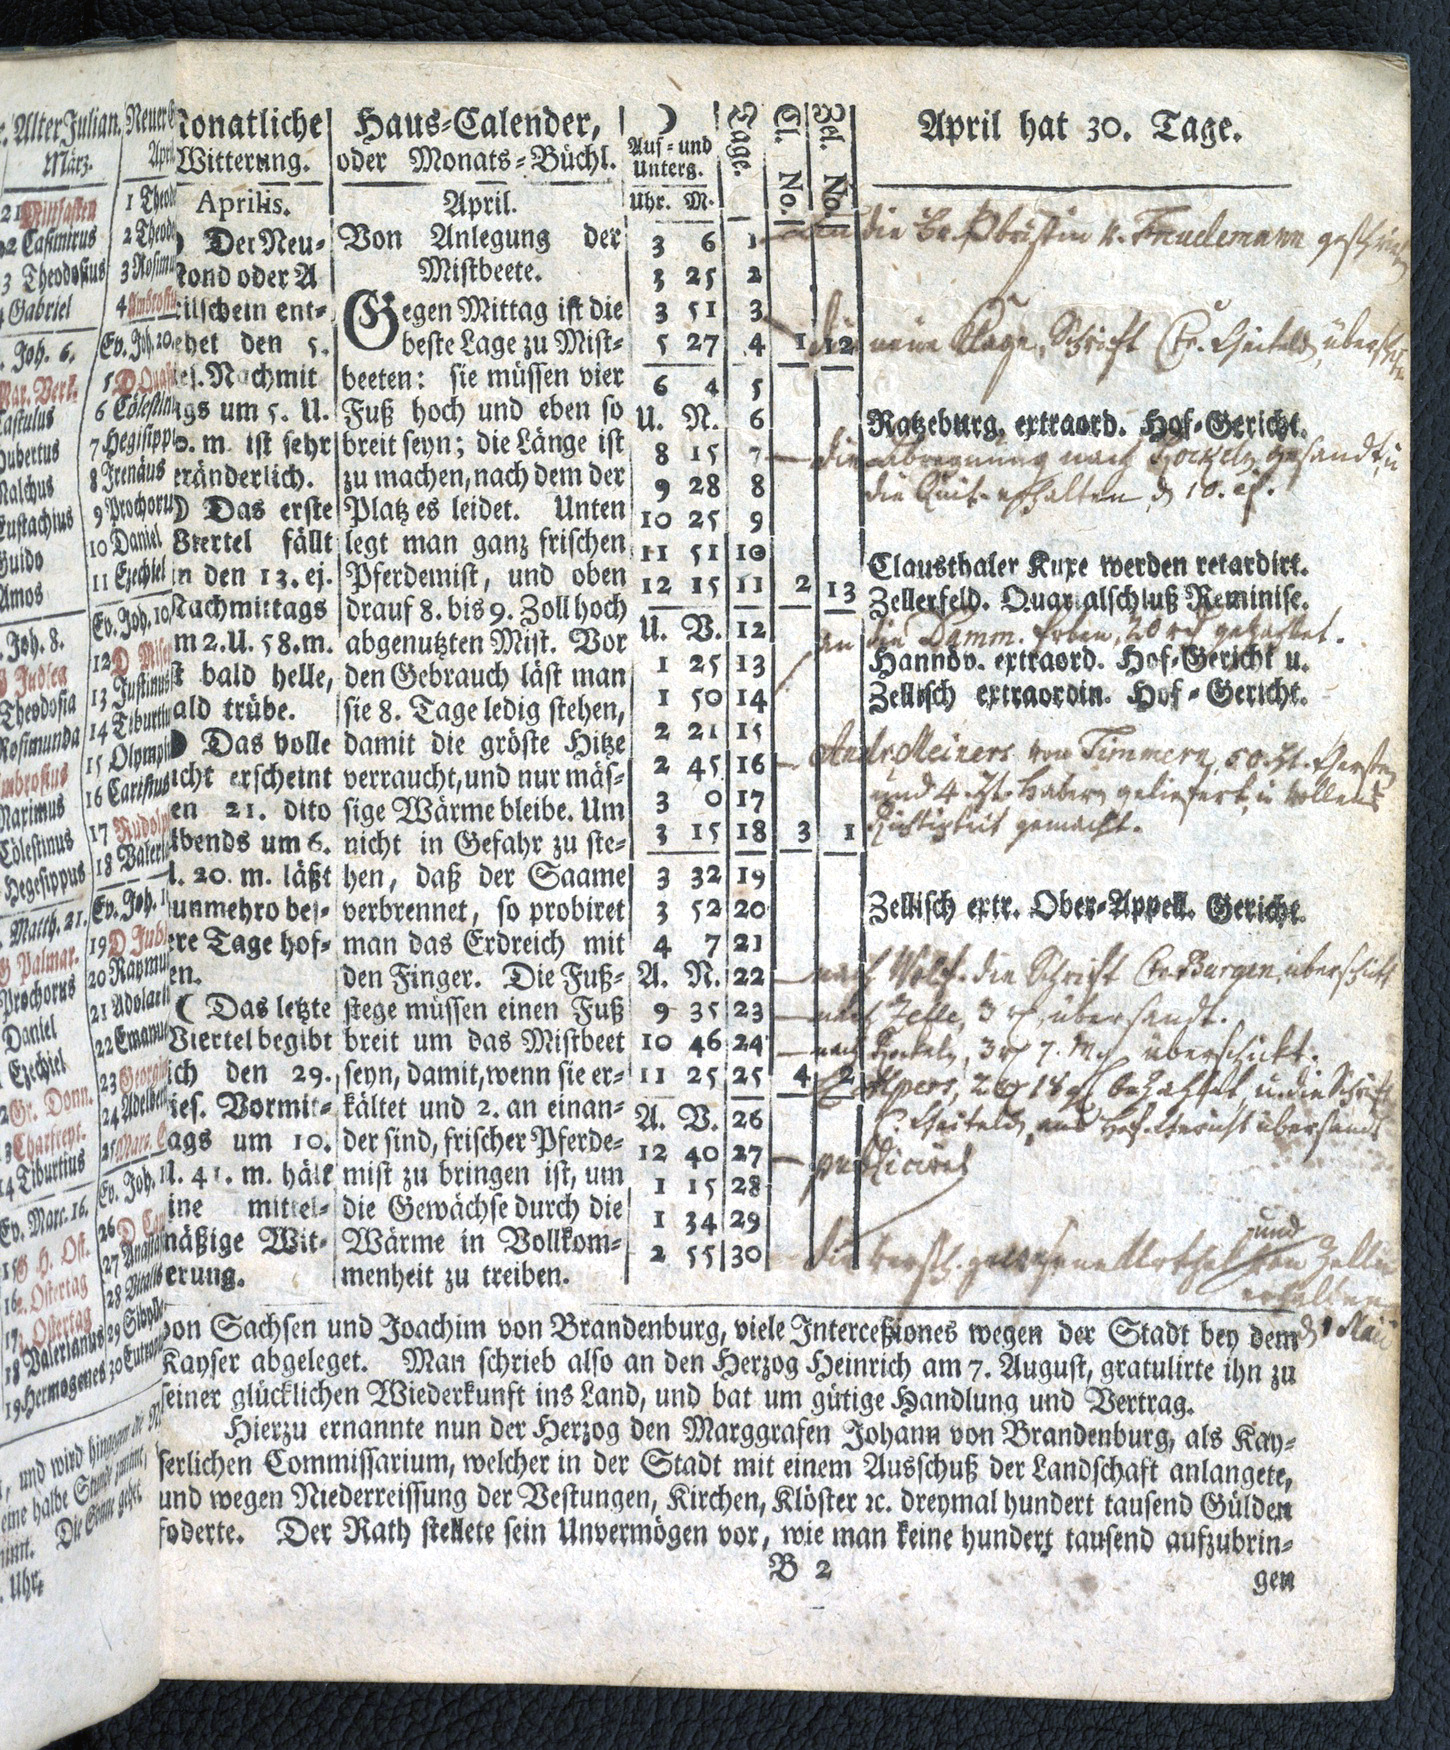 Alter Julian.
März.
21 Mitfasten
22 Casimirus
3 Theodosius
Gabriel
Joh. 6.
Mar. Verk.
Eustachius
Guido
Amos
Joh. 8.
Judica
Theodosia
Rosimunda
Ambrosius
Maximus
Cölestinus
Hegesippus
Matth. 21.
Palmar.
Prochorus
Daniel
Ezechiel
Gr. Donn.
Charfreyt.
14 Tiburtius
Ev. Marc. 16.
H. Ost.
16 2. Ostertag
17 3. Ostertag
18 Valerianus
19 Hermogenes
Neuer
April
1 Theod
2 Theod
3 Rosim
4 Ambrosi
Ev. Joh. 20.
5 D Quas
6 Cölestin
7 Hegisipp
8 Irenäus
9 Prochoru
10 Daniel
11 Ezechiel
Ev. Joh. 10.
12 D Mise
13 Justinus
14 Tiburtiu
15 Olympi
16 Caristus
17 Rudolp
18 Valeri
Ev. Joh. 1
19 D Jubi
20 Raymu
21 Adolari
22 Emanue
23 Georgiu
24 Adelbert
25 Marc. E
Ev. Joh.
26 D Can
27 Anasta
28 Vitalis
29 Sibylle
30 Eutrop
und wird hingegen
eine halbe Stunde
nimt. Die Sonne gehet
Uhr.
Monatliche
Witterung.
Aprilis.
Der Neu-
mond oder A
ilschein ent-
ehet den 5.
ej. Nachmit
gs um 5. U.
m. ist sehr
eränderlich.
Das erste
Viertel fällt
in den 13. ej.
Nachmittags
m 2. U. 58. m.
st bald helle,
ald trübe.
Das volle
icht erscheint
en 21. dito
Abends um 6.
20. m. läßt
unmehro bes-
ere Tage hof-
en.
( Das letzte
Viertel begibt
ich den 29.
ies. Vormit-
ags um 10.
U. 41. m. hält
ine mittel-
mäßige Wit-
erung.
Haus-Calender,
oder Monats-Büchl.
April.
Von Anlegung der
Mistbeete.
Gegen Mittag ist die
beste Lage zu Mist-
beeten: sie müssen vier
Fuß hoch und eben so
breit seyn; die Länge ist
zu machen, nach dem der
Platz es leidet. Unten
legt man ganz frischen
Pferdemist, und oben
drauf 8. bis 9. Zoll hoch
abgenutzten Mist. Vor
den Gebrauch läst man
sie 8. Tage ledig stehen,
damit die gröste Hitze
verraucht, und nur mäs-
sige Wärme bleibe. Um
nicht in Gefahr zu ste-
hen, daß der Saame
verbrennet, so probiret
man das Erdreich mit
den Finger. Die Fuß-
stege müssen einen Fuß
breit um das Mistbeet
seyn, damit, wenn sie er-
kältet und 2. an einan-
der sind, frischer Pferde-
mist zu bringen ist, um
die Gewächse durch die
Wärme in Vollkom-
menheit zu treiben.
☽
Auf- und
Unterg.
Uhr. M.
Tage.
Cl. No.
Zel. No.
3 6 1
3 25 2
3 51 3
5 27 4 1 12
6 4 5
U. N. 6
8 15 7
9 28 8
10 25 9
11 51 10
12 15 11 2 13
U. V. 12
1 25 13
1 50 14
2 21 15
2 45 16
3 0 17
3 15 18 3 1
3 32 19
3 52 20
4 7 21
A. N. 22
9 35 23
10 46 24
11 25 25 4 2
A. V. 26
12 40 27
1 15 28
1 34 29
2 55 30
April hat 30. Tage.
an die Fr. Obristin v. Freudemann
die neue Klage, Schrift
Ratzeburg. extraord. Hof-Gericht.
die nach gesandt, u
die Quit. erhalten d. 10. ej.
Clausthaler Kuxe werden retardirt.
Zellerfeld. Quartalschluß Reminisc.
an die Damm. Erben, 20 gezahlet.
Hannöv. extraord. Hof-Gericht u.
Zellisch extraordin. Hof-Gericht.
Andr. Meiners von Timmern, 50
und 4 Haber geliefert, u
Richtigkeit gemacht.
Zellisch extr. Ober-Appell. Gericht.
nach die Schrift überschickt
nach Zelle, 3 übersandt.
nach 3 7. überschickt.
18 bezahlet, und die Schrift
und Hof-Gericht übersandt
publiciret
und
die von Zelle
erhalten
d. 1 Maii
von Sachsen und Joachim von Brandenburg, viele Intercessiones wegen der Stadt bey dem
Kayser abgeleget. Man schrieb also an den Herzog Heinrich am 7. August, gratulirte ihn zu
seiner glücklichen Wiederkunft ins Land, und bat um gütige Handlung und Vertrag.
Hierzu ernannte nun der Herzog den Marggrafen Johann von Brandenburg, als Kay-
serlichen Commissarium, welcher in der Stadt mit einem Ausschuß der Landschaft anlangete,
und wegen Niederreissung der Vestungen, Kirchen, Klöster ꝛc. dreymal hundert tausend Gülden
foderte. Der Rath stellete sein Unvermögen vor, wie man keine hundert tausend aufzubrin-
B 2
gen